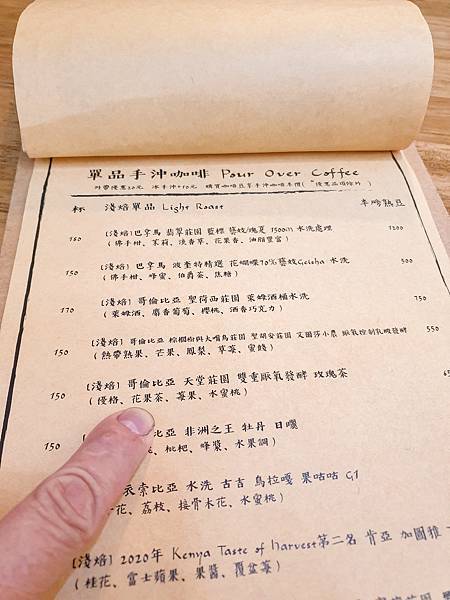 單品手沖咖啡 Pour Over Coffee
外帶優惠20元 冰手沖+10元 購買咖啡豆享手沖咖啡半價(*優惠品項除外)
杯 淺焙單品 Light Roast 半磅熟豆
180 〔淺焙〕巴拿馬 翡翠莊園 藍標 藝妓/瑰夏 1500m 水洗處理 1200
(佛手柑、茉莉、淡香草、花果香、油脂豐富)
150 〔淺焙〕巴拿馬 波奎特精選 花蝴蝶70%藝妓Geisha 水洗 500
(佛手柑、蜂蜜、伯爵茶、焦糖)
170 〔淺焙〕哥倫比亞 聖荷西莊園 萊姆酒桶水洗 750
(萊姆酒、麝香葡萄、櫻桃、酒香巧克力)
150 〔淺焙〕哥倫比亞 棕櫚樹與大嘴鳥莊園 聖胡安莊園 艾圖莎小農 厭氧控制乳酸發酵 550
(熱帶熟果、芒果、鳳梨、草莓、蜜餞)
150 〔淺焙〕哥倫比亞 天堂莊園 雙重厭氧發酵 玫瑰茶
(優格、花果茶、莓果、水蜜桃)
150 比亞 非洲之王 牡丹 日曬
、枇杷、蜂漿、水果調)
衣索比亞 水洗 古吉 烏拉嘎 果咕咕 G1
花、荔枝、接骨木花、水蜜桃)
〔淺焙〕2020年 Kenya Taste of harvest第二名 肯亞 加圖雅
(桂花、富士蘋果、果醬、覆盆莓)